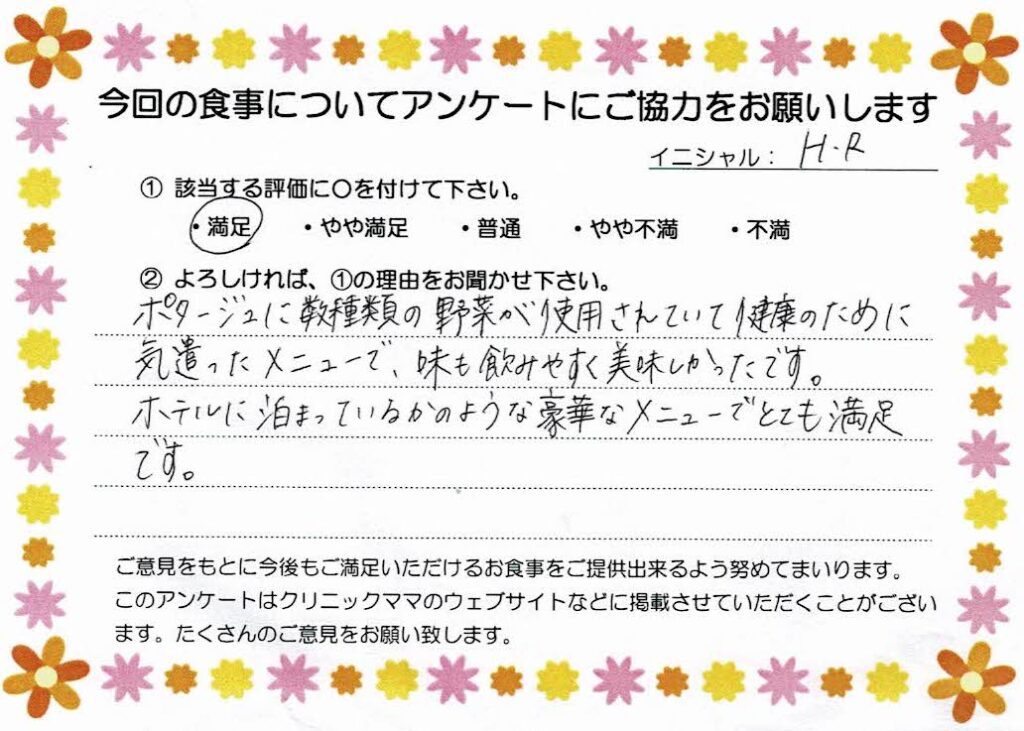 今回の食事についてアンケートにご協力をお願いします
イニシャル: H.R
① 該当する評価に○を付けて下さい。
・満足 ・やや満足 ・普通 ・やや不満 ・不満
② よろしければ、①の理由をお聞かせ下さい。
ポタージュに数種類の野菜が使用されていて健康のために
気遣ったメニューで、味も飲みやすく美味しかったです。
ホテルに泊まっているかのような豪華なメニューでとても満足
です。
ご意見をもとに今後もご満足いただけるお食事をご提供出来るよう努めてまいります。
このアンケートはクリニックママのウェブサイトなどに掲載させていただくことがござい
ます。たくさんのご意見をお願い致します。